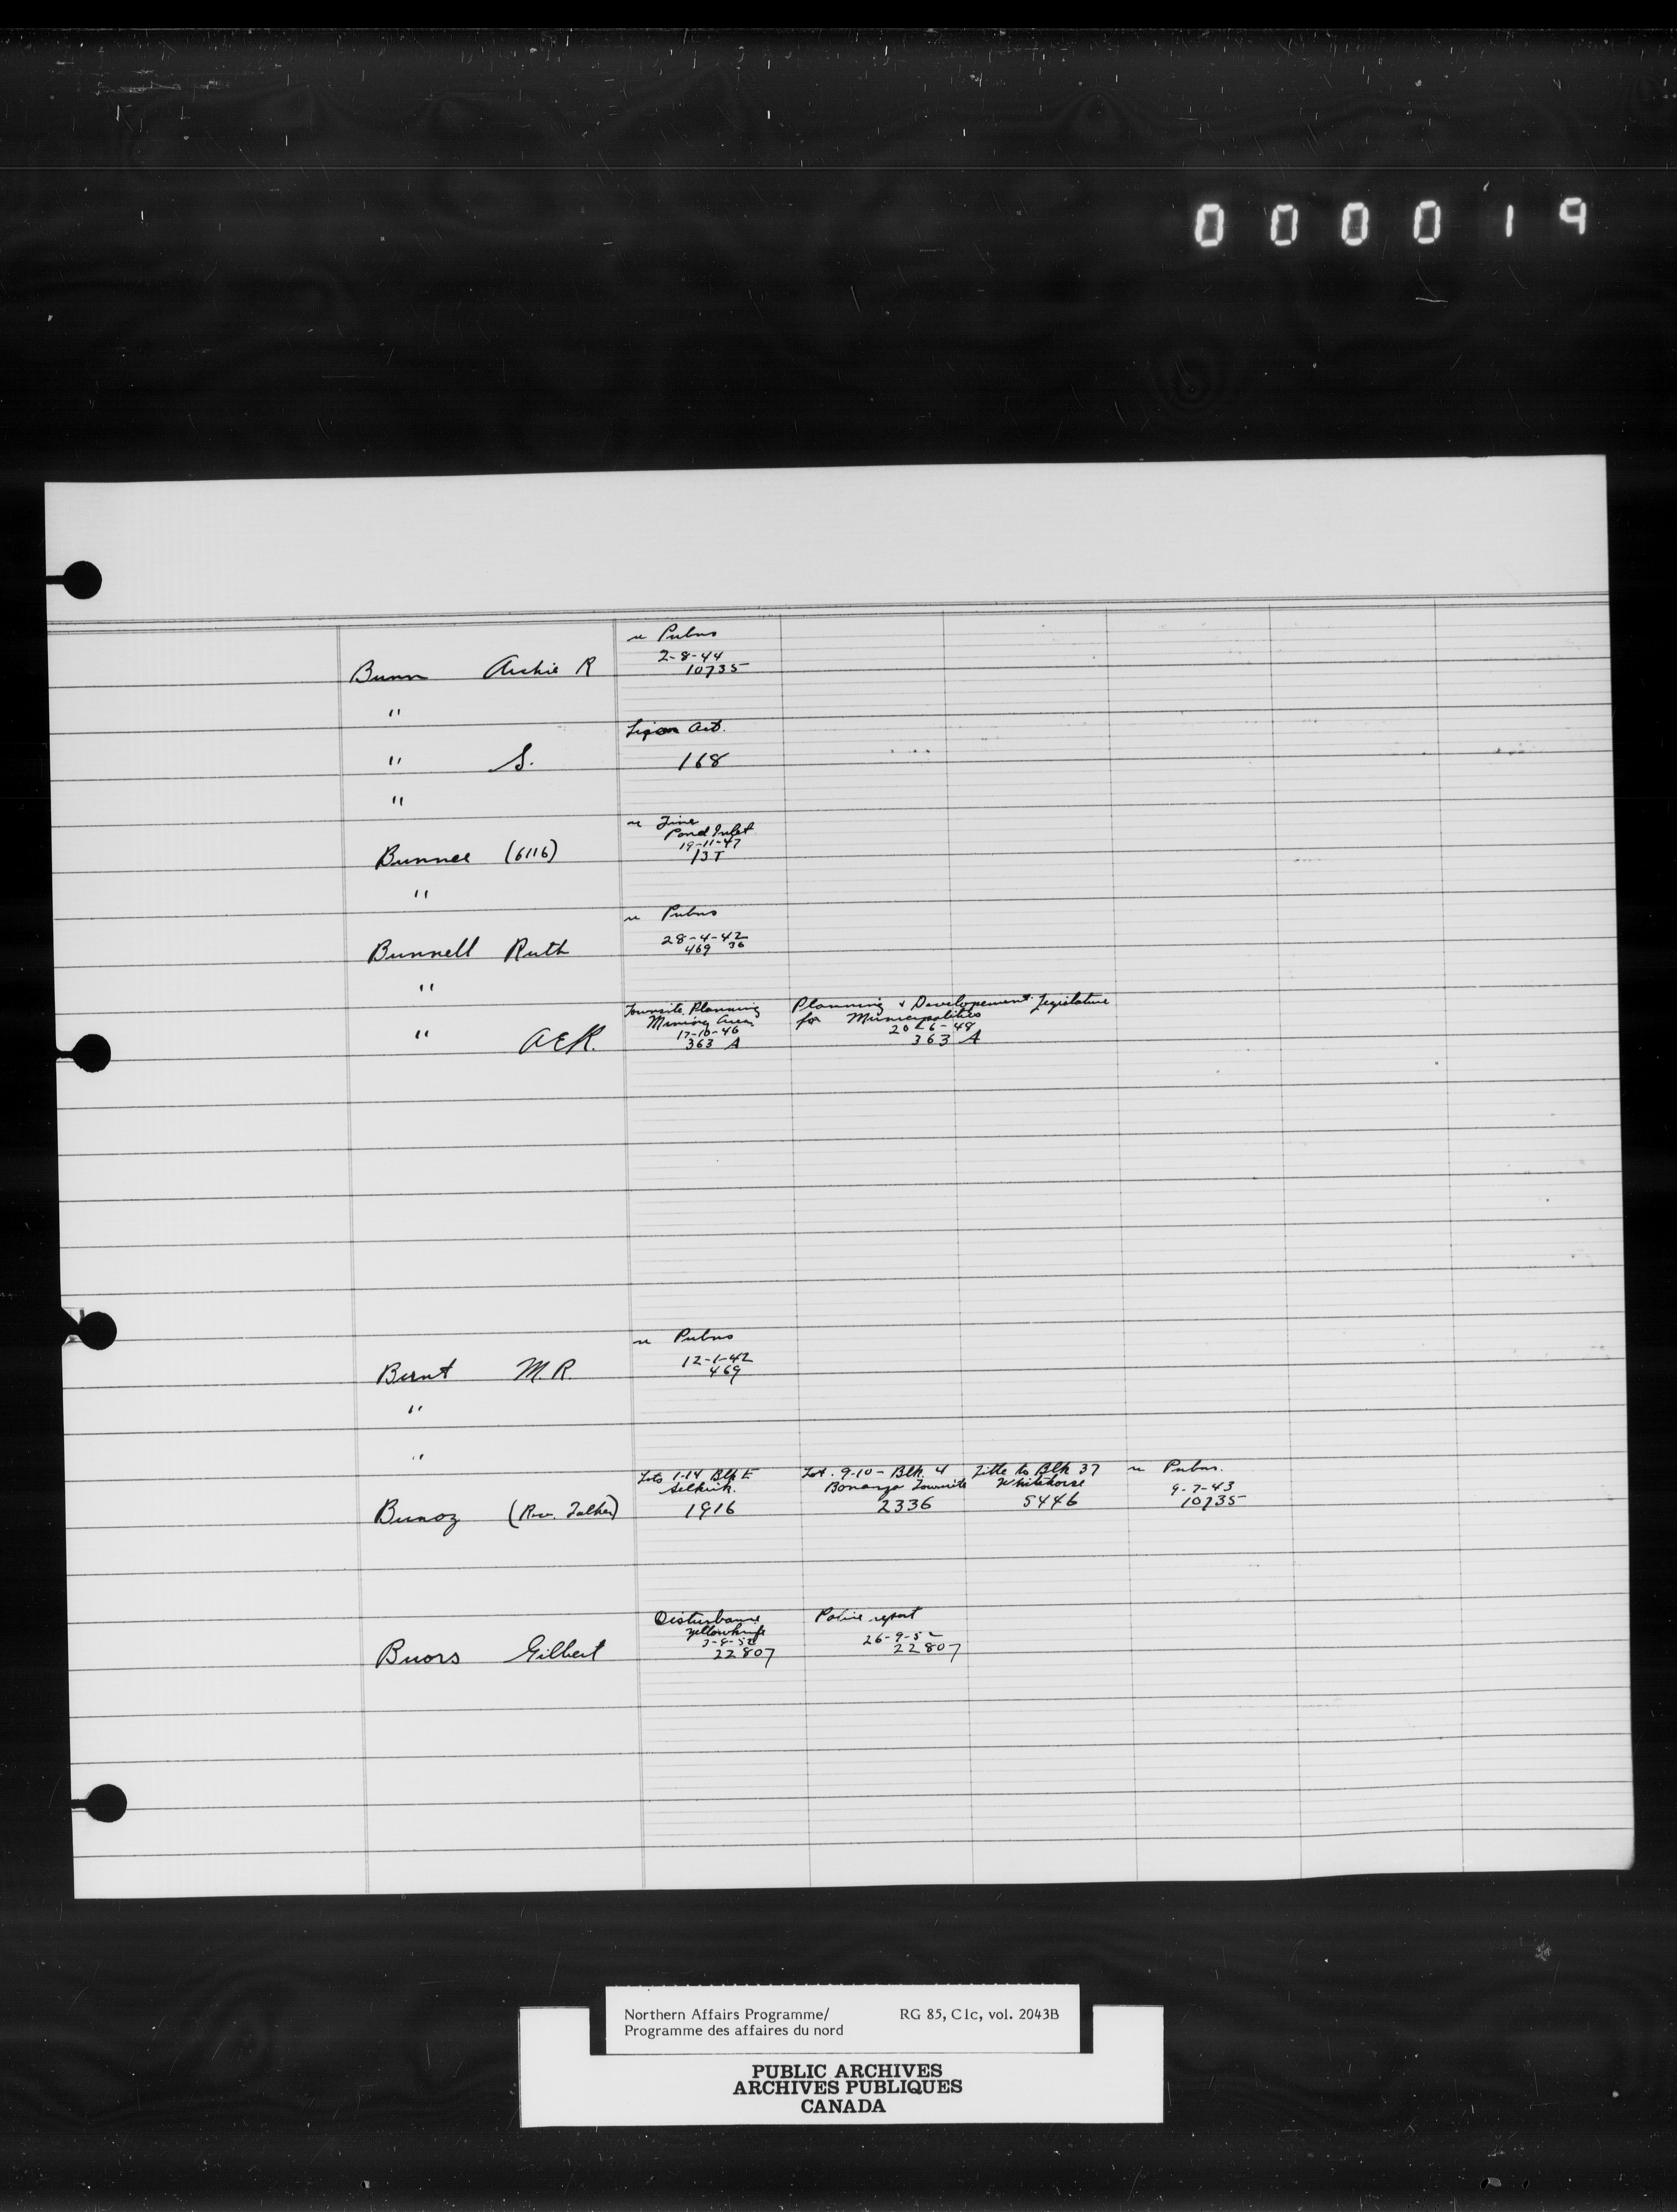 000019
Pubns
2-8-44
Bunn Archie R 10735
"
Act.
" S. 168
"
Pond Inlet
19-11-47
Bunnee (6116) 13T
"
Pubns
28-4-42
Bunnell Ruth 469 36
"
Townsite Planning Planning & Developement Legislature
Mining Area for Municipalities
17-10-46 20-6-48
" AER. 363 A 363 A
Pubns
12-1-42
Burnt M. R. 469
"
"
Lots 1-14 Blk E Lot. 9-10 - Blk. 4 Title to Blk 37 Pubns.
Selkirk. Bonanza Townsite Whitehorse 9-7-43
Bunoz (Rev. Father) 1916 2336 5446 10735
Disturbance Police report
Yellowknife 26-9-52
Buors Gilbert 22807 22807
Northern Affairs Programme/ RG 85, C1c, vol. 2043B
Programme des affaires du nord
PUBLIC ARCHIVES
ARCHIVES PUBLIQUES
CANADA